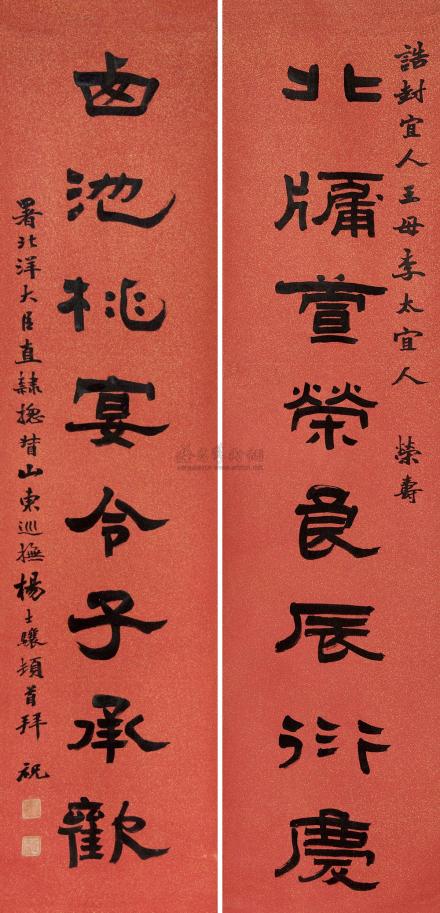 誥封宜人王母李太宜人　榮壽
北牖萱榮良辰衍慶
西池桃宴令子承歡
署北洋大臣直隸總督山東巡撫楊士驤頓首拜祝